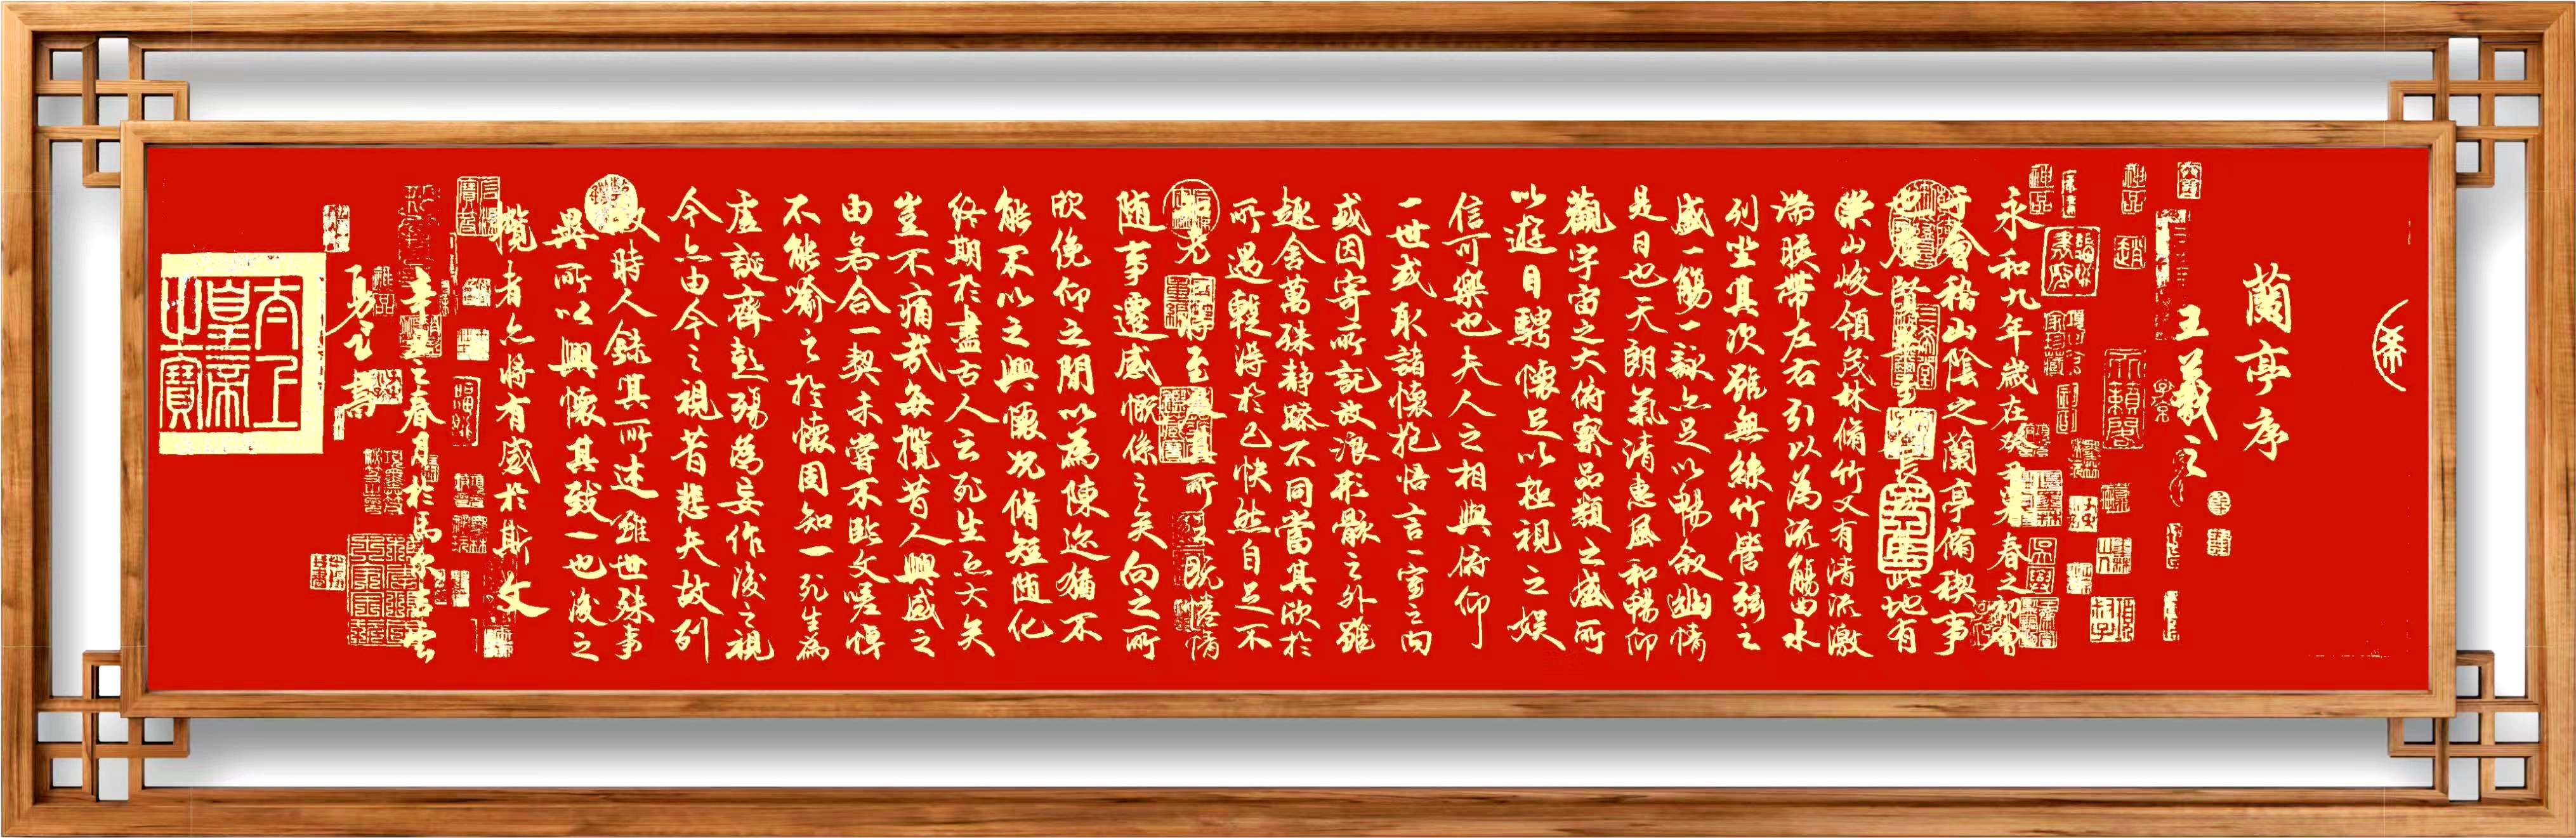 蘭亭序
王羲之
永和九年歲在癸丑暮春之初會
于會稽山陰之蘭亭脩稧事
也羣賢畢至長此地有
崇山峻領茂林脩竹又有清流激
湍暎帶左右引以為流觴曲水
列坐其次雖無絲竹管弦之
盛一觴一詠亦足以暢敘幽情
是日也天朗氣清惠風和暢仰
觀宇宙之大俯察品類之盛所
以遊目騁懷足以極視之娛
信可樂也夫人之相與俯仰
一世或取諸懷抱悟言一室之內
或因寄所託放浪形骸之外雖
趣舍萬殊靜躁不同當其欣於
所遇蹔得於己快然自足不
知老之將至及其所之既惓情
隨事遷感慨係之矣向之所
欣俛仰之閒以為陳迹猶不
能不以之興懷況脩短隨化
終期於盡古人云死生亦大矣
豈不痛哉每攬昔人興感之
由若合一契未嘗不臨文嗟悼
不能喻之於懷固知一死生為
虛誕齊彭殤為妄作後之視
今亦由今之視昔悲夫故列
敘時人錄其所述雖世殊事
異所以興懷其致一也後之
攬者亦將有感於斯文
辛丑之春月於馬
書
太上皇帝之寶